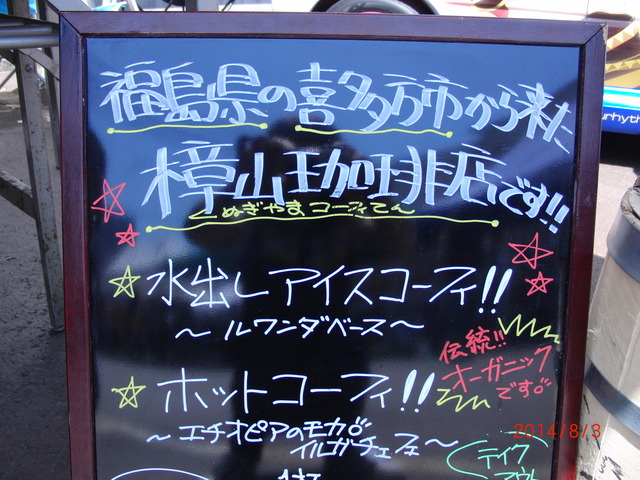 福島県の喜多方市から来た
樟山珈琲店です!!
くぬぎやまコーフィてん
水出しアイスコーフィ!!
~ルワンダベース~
伝統!!
オーガニック
です。
ホットコーフィ!!
~エチオピアのモカ
イルガチェフェ~
テイク
アウト
urhyth
2014/8/3